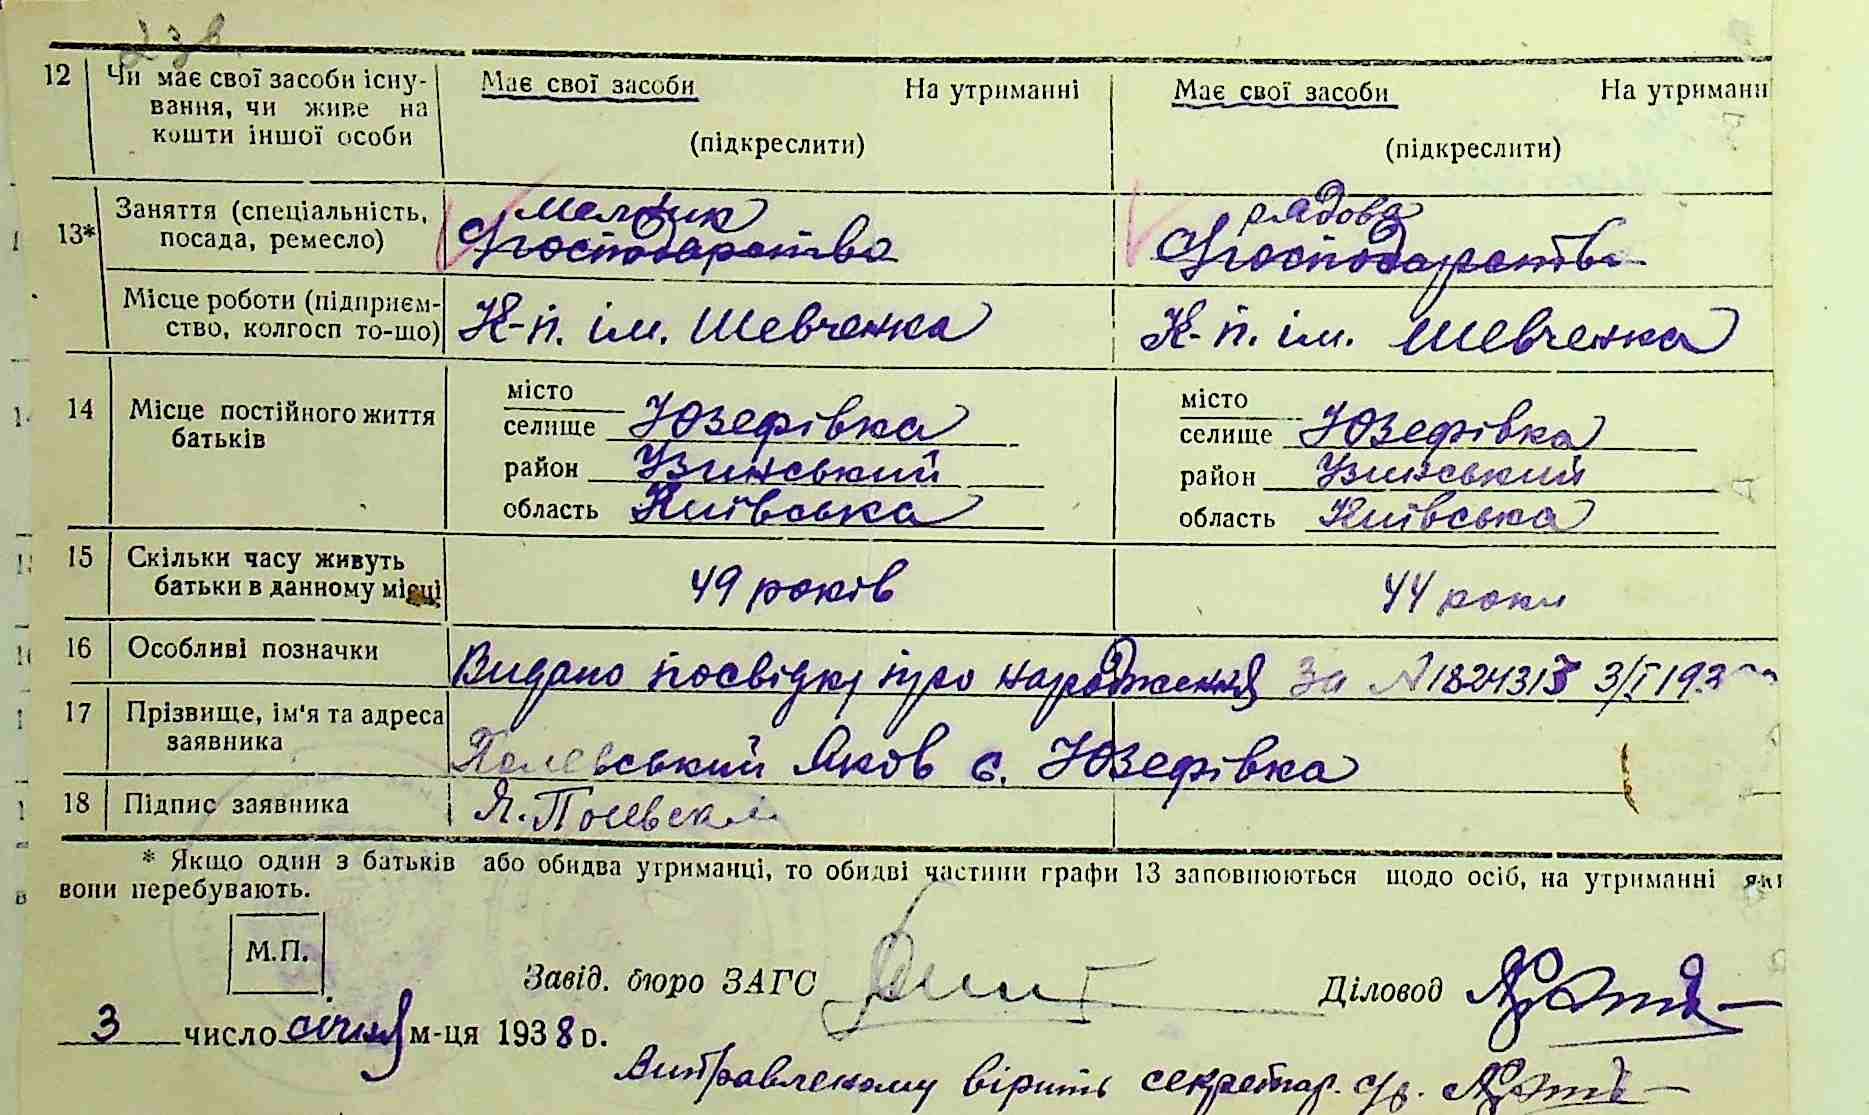 23в
12 Чи має свої засоби існу-
вання, чи живе на
кошти іншої особи
Має свої засоби На утриманні
(підкреслити)
Має свої засоби На утриманн
(підкреслити)
13* Заняття (спеціальність,
посада, ремесло)
мельник
господарства
рядова
господарства
Місце роботи (підприєм-
ство, колгосп то-що)
К-п. ім. Шевченка
К-п. ім. Шевченка
14 Місце постійного життя
батьків
місто
селище Юзефівка
район Узинський
область Київська
місто
селище Юзефівка
район Узинський
область Київська
15 Скільки часу живуть
батьки в данному місці
49 років
44 роки
16 Особливі позначки
Видано посвідку про народження за № 182431 3/I 193
17 Прізвище, ім'я та адреса
заявника
Полевський Яков с. Юзефівка
18 Підпис заявника
Я. Полевский
* Якщо один з батьків або обидва утриманці, то обидві частини графи 13 заповнюються щодо осіб, на утриманні які
вони перебувають.
М.П.
Завід. бюро ЗАГС
Діловод
3 число січня м-ця 1938 р.
Виправленому вірить секретар. с/р.